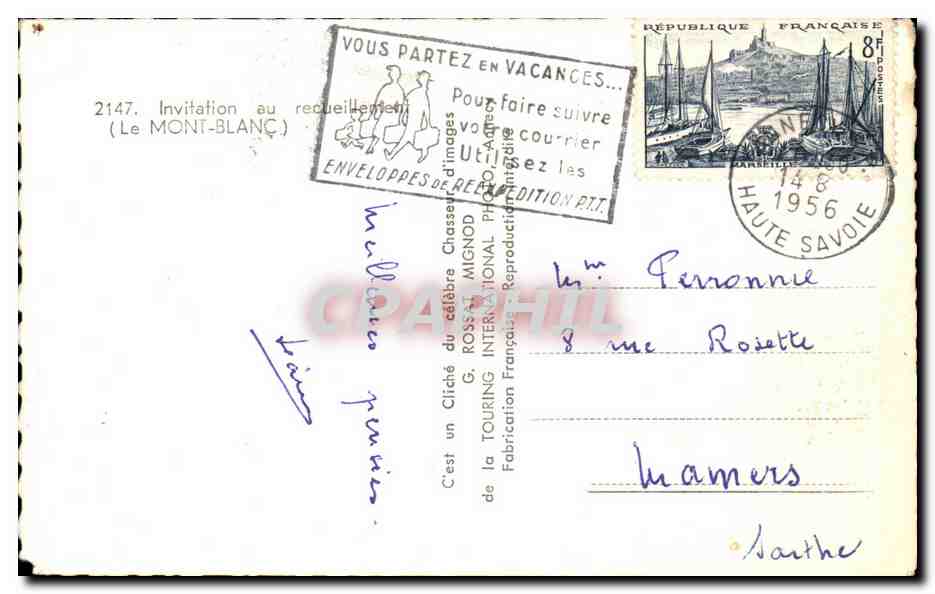 2147. Invitation au recueillement
(Le MONT-BLANC)
VOUS PARTEZ EN VACANCES...
Pour faire suivre
votre courrier
Utilisez les
ENVELOPPES DE REEXPEDITION P.T.T.
RÉPUBLIQUE FRANÇAISE
8F
POSTES
MARSEILLE
14-8
1956
HAUTE SAVOIE
Meilleures pensées.
C'est un Cliché du célèbre Chasseur d'images
G. ROSSAT MIGNOD
de la TOURING INTERNATIONAL PHOTO - Annecy
Fabrication Française - Reproduction Interdite
CPAPHIL
Mme Perronnie
8 rue Rosette
Mamers
Sarthe